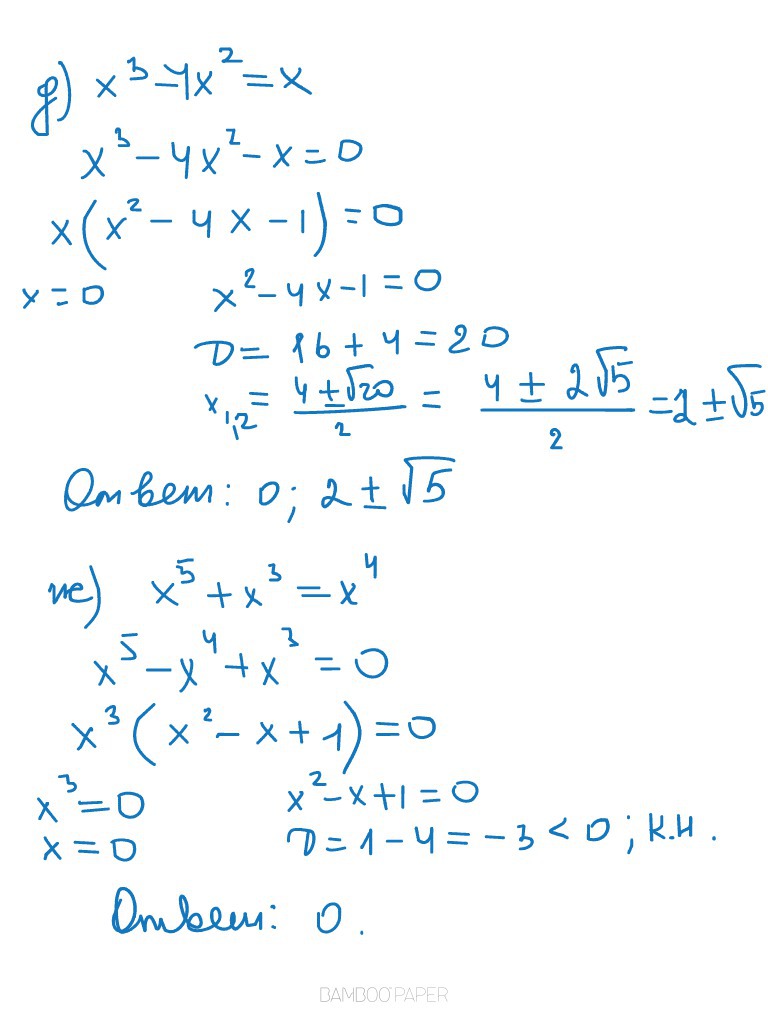 д) x³ - 4x² = x
x³ - 4x² - x = 0
x(x² - 4x - 1) = 0
x = 0 x² - 4x - 1 = 0
D = 16 + 4 = 20
x₁,₂ = (4 ± √20)/2 = (4 ± 2√5)/2 = 2 ± √5
Ответ: 0; 2 ± √5
же) x⁵ + x³ = x⁴
x⁵ - x⁴ + x³ = 0
x³(x² - x + 1) = 0
x³ = 0 x² - x + 1 = 0
x = 0 D = 1 - 4 = -3 < 0; к.н.
Ответ: 0.
BAMBOO PAPER